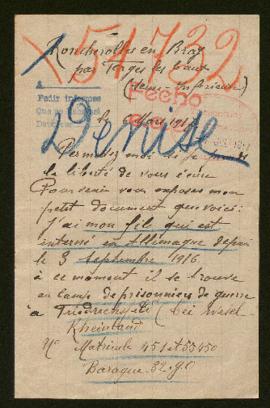 51722
Roncherolles en Bray
par Forges les Eaux
(Seine-Inférieure)
A
Pedir informes
Fecho
le 6 Mars 1918
Denise
Permettez moi si je
la liberté de vous
Pour vous exposer mon
petit document que voici:
J'ai mon fils qui est
interné en Allemagne depuis
le 3 Septembre 1916
à ce moment il se trouve
au camp de prisonniers de guerre
a Friedrichsfeld (bei Wesel
Rheinland
Matricule
Baraque 32